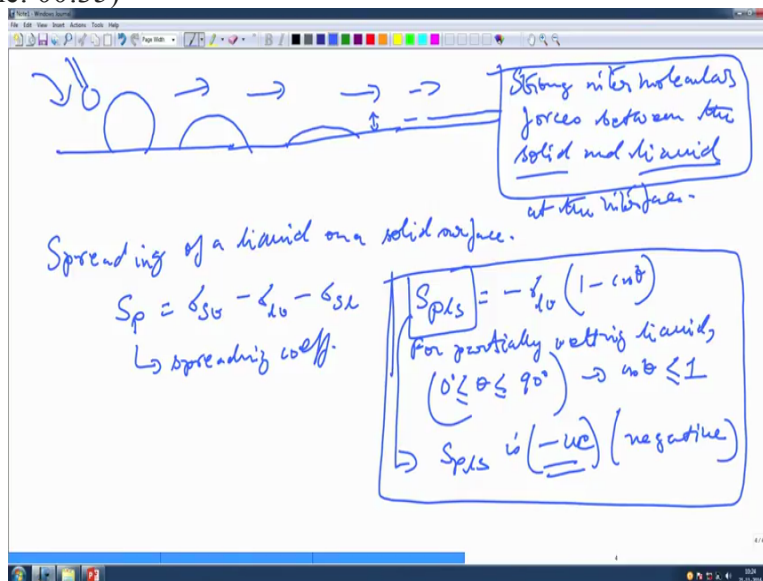 Note1 - Windows Journal
File Edit View Insert Actions Tools Help
Page Width
B I
Strong intermolecular
forces between the
solid and liquid
at the interface.
Spreading of a liquid on a solid surface.
Sp = σsv - σlv - σsl
↳ spreading coeff.
Spls = - σlv (1 - cosθ)
For partially wetting liquid,
(0° ≤ θ ≤ 90°) → cosθ ≤ 1
⇒ Spls is (-ve) (negative)
4
10:24